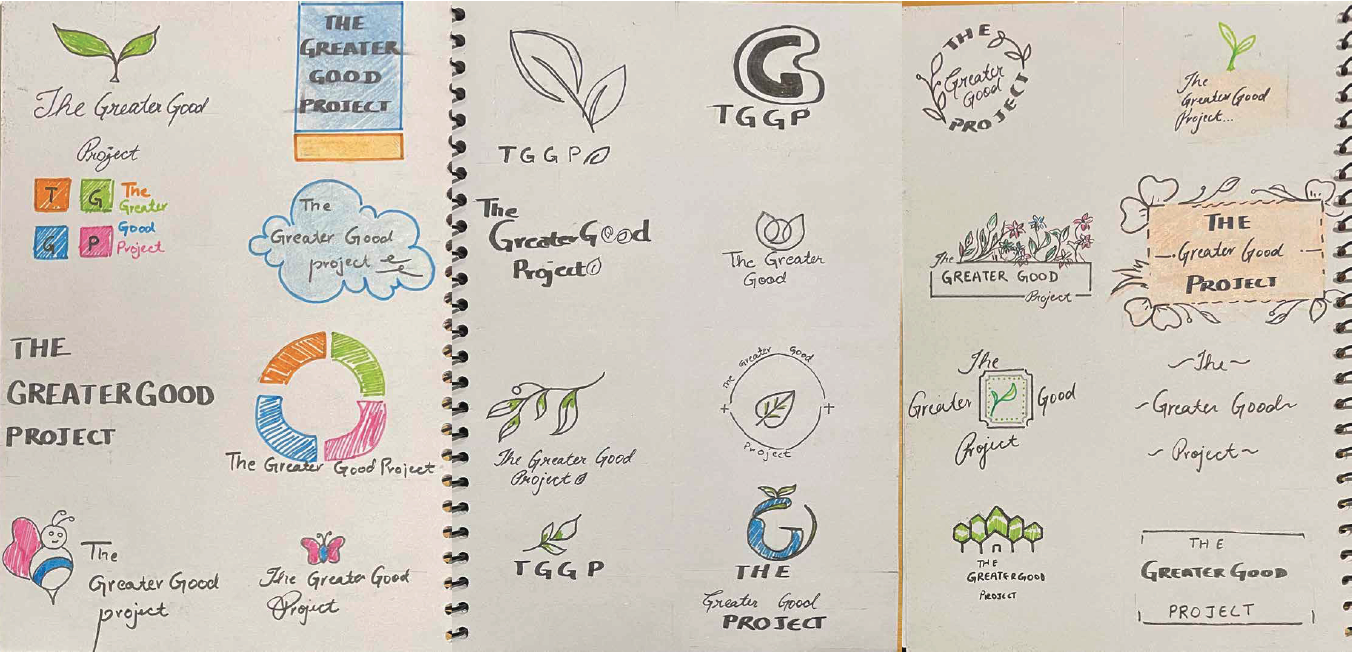 The Greater Good
Project
THE
GREATER
GOOD
PROJECT
T G The
Greater
G P Good
Project
The
Greater Good
project
THE
GREATER GOOD
PROJECT
The Greater Good Project
The
Greater Good
project
The Greater Good
Project
TGGP
G
TGGP
The
Greater Good
Project
The Greater
Good
The Greater Good
Project
The Greater Good
Project
TGGP
G
THE
Greater Good
PROJECT
THE
Greater
Good
PROJECT
The
Greater Good
Project...
The
GREATER GOOD
Project
THE
Greater Good
PROJECT
The
Greater Good
Project
~The~
~Greater Good~
~Project~
THE
GREATER GOOD
PROJECT
THE
GREATER GOOD
PROJECT